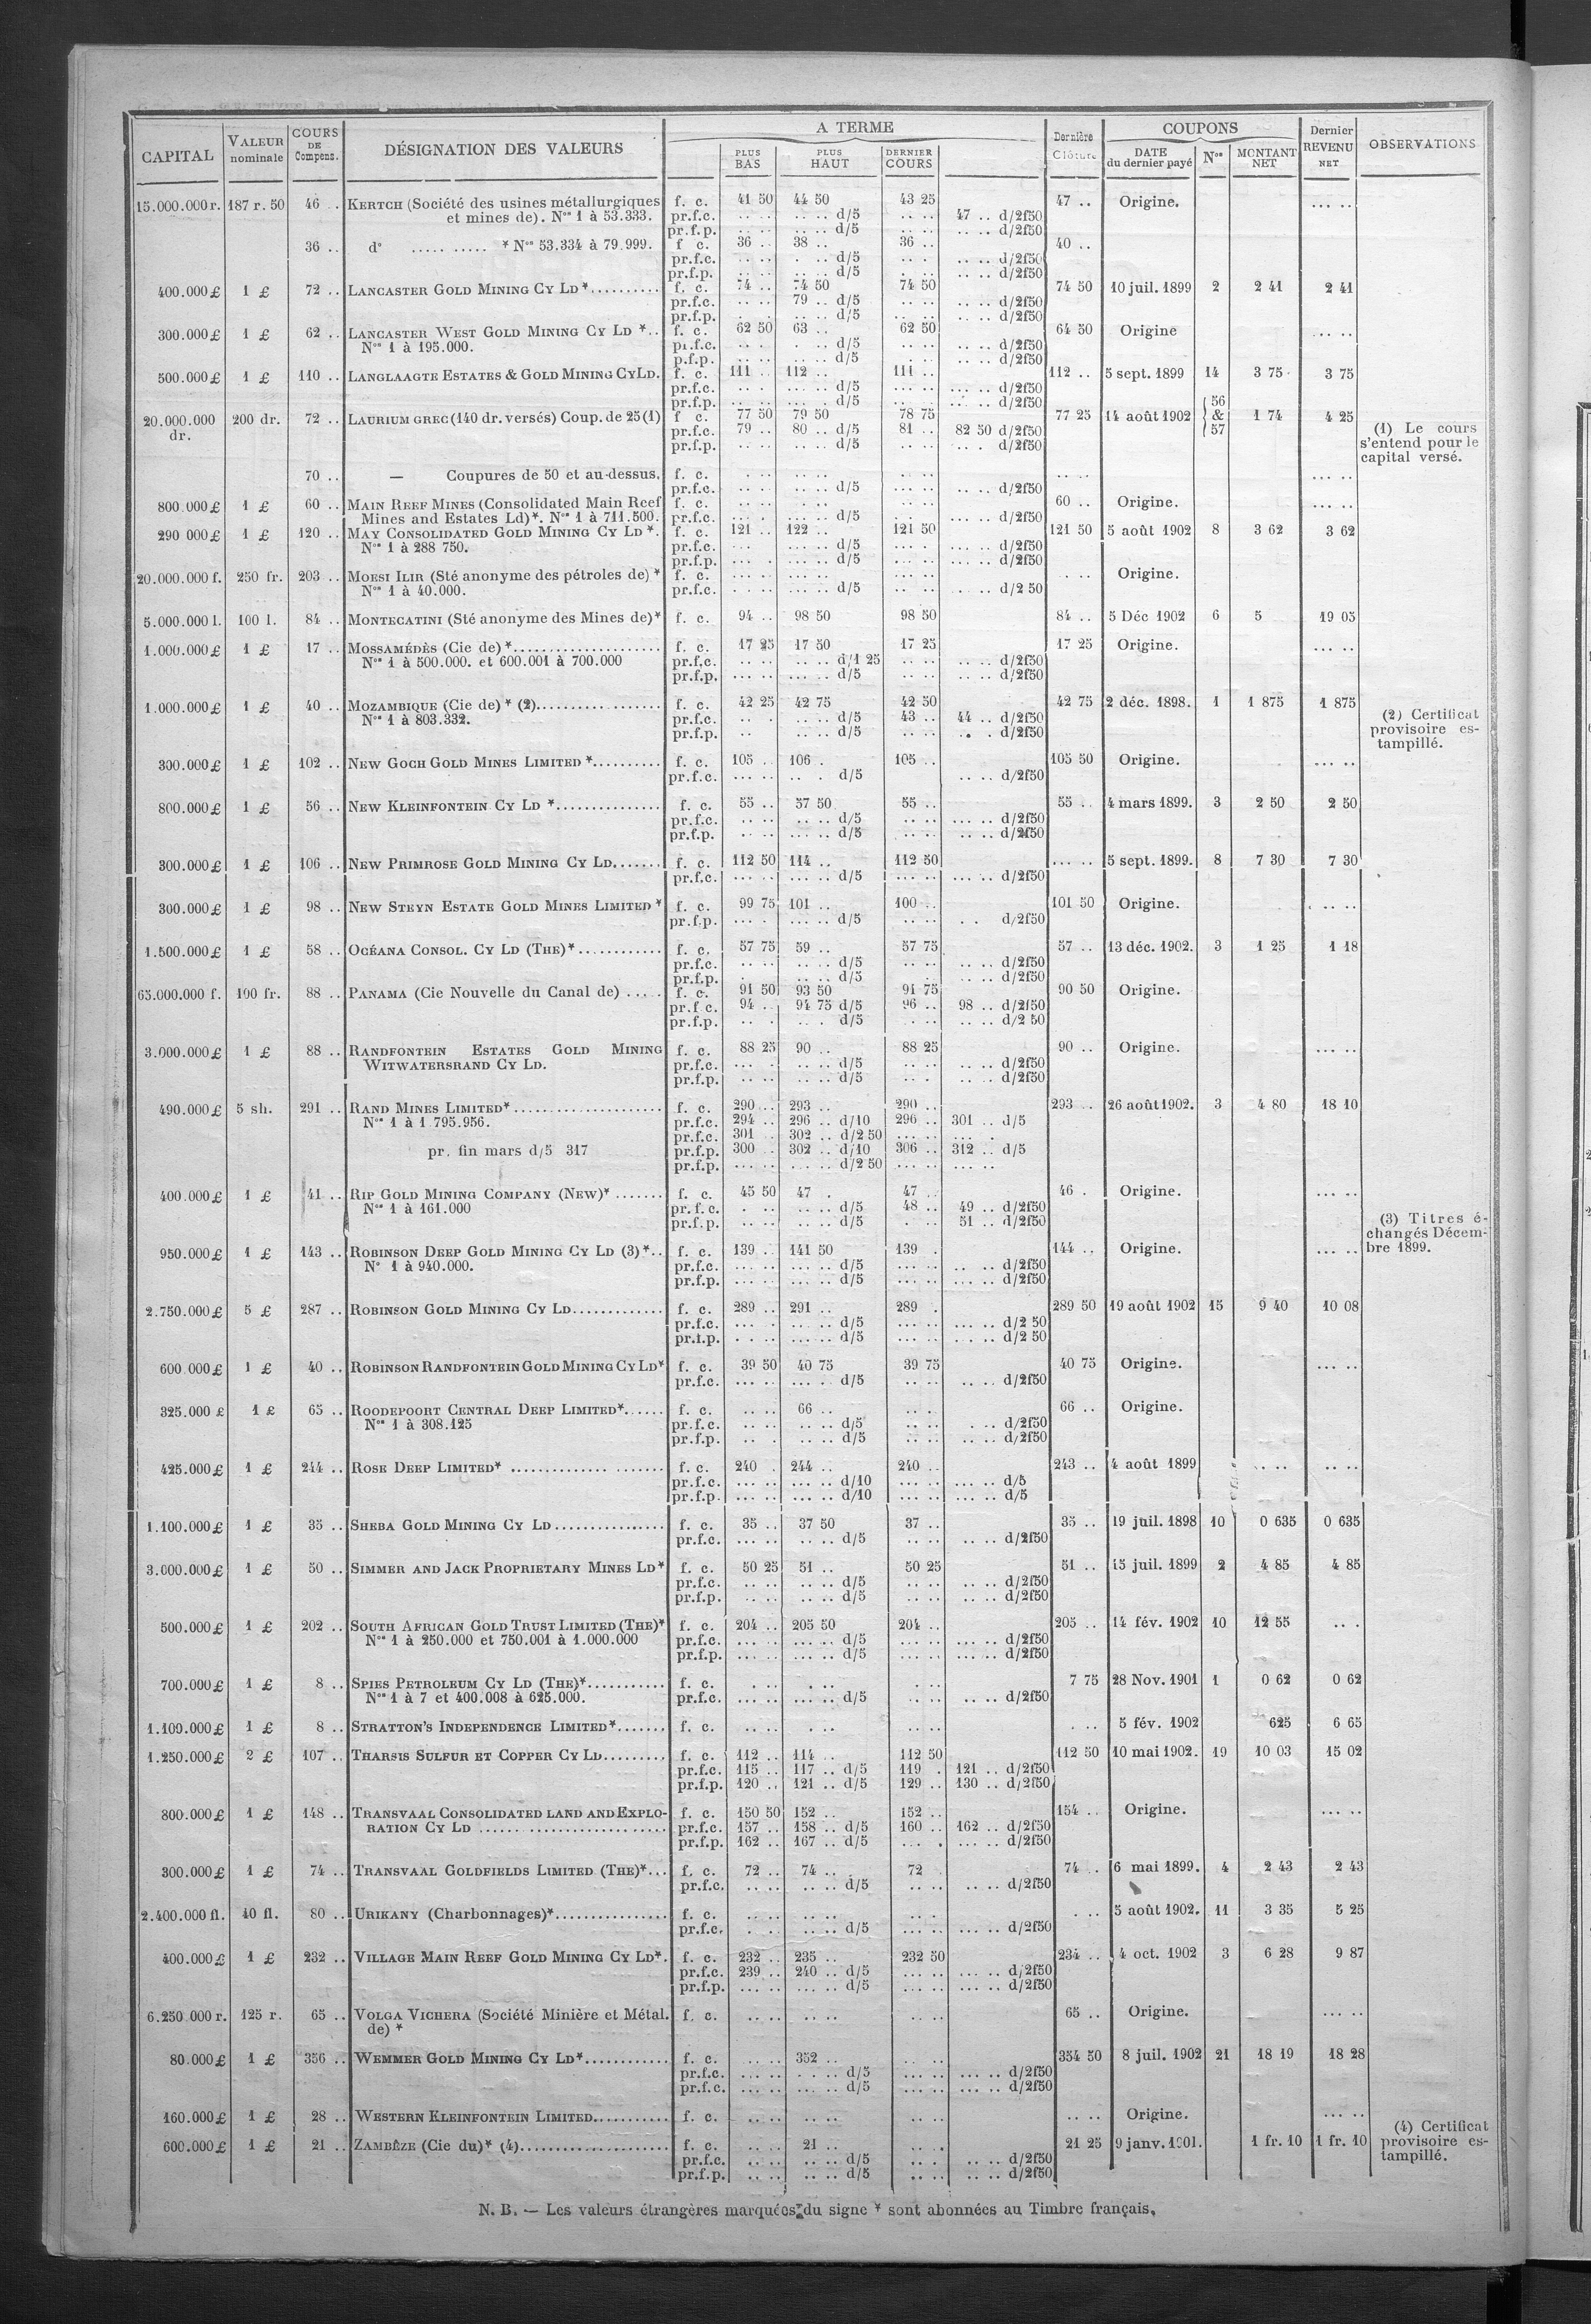 CAPITAL VALEUR nominale COURS DE Compens. DÉSIGNATION DES VALEURS A TERME PLUS BAS PLUS HAUT DERNIER COURS Dernière Clôture COUPONS DATE du dernier payé Nos MONTANT NET Dernier REVENU NET OBSERVATIONS
15.000.000 r. 187 r. 50 46 .. KERTCH (Société des usines métallurgiques f. c. 41 50 44 50 43 25 47 .. Origine. ... ..
et mines de). Nos 1 à 53.333. pr.f.c. .. .. .. .. d/5 .. .. 47 .. d/2f50
pr.f.p. .. .. .. .. d/5 .. .. .. .. d/2f50
36 .. do ..... ..... * Nos 53.334 à 79.999. f c. 36 .. 38 .. 36 .. 40 ..
pr.f.c. .. .. . .. d/5 .. . .. .. d/2f50
pr.f.p. .. .. .. .. d/5 . .. .. .. d/2f50
400.000 £ 1 £ 72 .. LANCASTER GOLD MINING CY LD *.......... f. c. 74 .. 74 50 74 50 74 50 10 juil. 1899 2 2 41 2 41
pr.f.c. .. .. 79 .. d/5 .. .. .. .. d/2f50
pr.f.p. .. .. d/5 .. .. .. .. d/2f50
300.000 £ 1 £ 62 .. LANCASTER WEST GOLD MINING CY LD *.. f. c. 62 50 63 .. 62 50 64 50 Origine ... ..
Nos 1 à 195.000. pr.f.c. .. . . .. d/5 .. .. .. .. d/2f50
p.f.p. .. .. .. .. d/5 . .. .. .. d/2f50
500.000 £ 1 £ 110 .. LANGLAAGTE ESTATES & GOLD MINING CY LD. f. c. 111 .. 112 .. 111 .. 112 .. 5 sept. 1899 14 3 75 3 75
pr.f.c. ... . ... .. d/5 .. .. ... .. d/2f50
pr.f.p. ... .. ... . d/5 .. .. ... .. d/2f50
20.000.000 dr. 200 dr. 72 .. LAURIUM GREC (140 dr. versés) Coup. de 25 (1) f c. 77 50 79 50 78 75 77 25 14 août 1902 56 & 57 1 74 4 25
pr.f.c. 79 .. 80 .. d/5 81 .. 82 50 d/2f50 (1) Le cours s'entend pour le capital versé.
pr.f.p. .. .. .. .. d/5 .. .. .. . d/2f50
70 .. — Coupures de 50 et au-dessus. f. c. .. .. .. .. .. .. .. .. ... ..
pr.f.c. .. .. .. .. d/5 .. .. .. .. d/2f50
800.000 £ 1 £ 60 .. MAIN REEF MINES (Consolidated Main Reef f. c. .. .. .. .. .. .. 60 .. Origine. ... ..
Mines and Estates Ld)*. Nos 1 à 711.500. pr.f.c. .. . ... .. d/5 .. .. ... .. d/2f50
290 000 £ 1 £ 120 .. MAY CONSOLIDATED GOLD MINING CY LD *. f. c. 121 .. 122 .. 121 50 121 50 5 août 1902 8 3 62 3 62
Nos 1 à 288 750. pr.f.c. ... ... .. d/5 ... . ... .. d/2f50
pr.f.p. ... . ... .. d/5 ... .. ... .. d/2f50
20.000.000 f. 250 fr. 203 .. MOESI ILIR (Sté anonyme des pétroles de) * f. c. ... .. ... .. ... .. . .. Origine.
Nos 1 à 40.000. pr.f.c. . .. .. ... .. d/5 .. .. . .. .. d/2 50
5.000.000 l. 100 l. 84 .. MONTECATINI (Sté anonyme des Mines de)* f. c. 94 .. 98 50 98 50 84 .. 5 Déc 1902 6 5 19 05
1.000.000 £ 1 £ 17 .. MOSSAMÉDÈS (Cie de) *..................... f. c. 17 25 17 50 17 25 17 25 Origine. ... ..
Nos 1 à 500.000. et 600.001 à 700.000 pr.f.c. .. .. .. .. d/1 25 .. .. .. .. d/2f50
pr.f.p. ... .. ... .. d/5 .. .. .. .. d/2f50
1.000.000 £ 1 £ 40 .. MOZAMBIQUE (Cie de) * (2).................. f. c. 42 25 42 75 42 50 42 75 2 déc. 1898. 1 1 875 1 875
Nos 1 à 803.332. pr.f.c. .. . .. .. d/5 43 .. 44 .. d/2f50 (2) Certificat provisoire estampillé.
pr.f.p. .. .. .. d/5 .. .. .. . d/2f50
300.000 £ 1 £ 102 .. NEW GOCH GOLD MINES LIMITED *.......... f. c. 105 .. 106 . 105 .. 105 50 Origine. ... ..
pr.f.c. ... .. .. . d/5 .. .. d/2f50
800.000 £ 1 £ 56 .. NEW KLEINFONTEIN CY LD *............... f. c. 55 .. 57 50 55 .. 55 .. 4 mars 1899. 3 2 50 2 50
pr.f.c. .. .. .. .. d/5 .. .. ... .. d/2f50
pr.f.p. .. .. .. .. d/5 .. .. .. .. d/2f50
300.000 £ 1 £ 106 .. NEW PRIMROSE GOLD MINING CY LD....... f. c. 112 50 114 .. 112 50 ... .. 5 sept. 1899. 8 7 30 7 30
pr.f.c. ... .. ... .. d/5 ... .. ... .. d/2f50
300.000 £ 1 £ 98 .. NEW STEYN ESTATE GOLD MINES LIMITED * f. c. 99 75 101 .. 100 .. 101 50 Origine. . .. ..
pr.f.p. ... . ... .. d/5 ... .. . . d/2f50
1.500.000 £ 1 £ 58 .. OCÉANA CONSOL. CY LD (THE)*............ f. c. 57 75 59 .. 57 75 57 .. 13 déc. 1902. 3 1 25 1 18
pr.f.c. .. .. .. .. d/5 .. .. .. .. d/2f50
pr.f.p. . .. .. d/5 . .. .. .. d/2f50
65.000.000 f. 100 fr. 88 .. PANAMA (Cie Nouvelle du Canal de) ..... f. c. 91 50 93 50 91 75 90 50 Origine.
pr.f.c. 94 .. 94 75 d/5 96 .. 98 .. d/2f50
pr.f.p. .. . .. . d/5 . .. .. .. d/2 50
3.000.000 £ 1 £ 88 .. RANDFONTEIN ESTATES GOLD MINING f. c. 88 25 90 .. 88 25 90 .. Origine. ... ..
WITWATERSRAND CY LD. pr.f.c. ... . .. .. d/5 .. .. .. .. d/2f50
pr.f.p. .. .. .. .. d/5 .. . .. .. d/2f50
490.000 £ 5 sh. 291 .. RAND MINES LIMITED*..................... f. c. 290 .. 293 .. 290 .. 293 .. 26 août 1902. 3 4 80 18 10
Nos 1 à 1.795.956. pr.f.c. 294 .. 296 .. d/10 296 .. 301 .. d/5
pr.f.c. 301 302 .. d/2 50 ... .. ... .
pr. fin mars d/5 317 pr.f.p. 300 .. 302 .. d/10 306 .. 312 .. d/5
pr.f.p. ... .. . .. .. d/2 50 ... .. ... ..
400.000 £ 1 £ 41 .. RIP GOLD MINING COMPANY (NEW)* ....... f. c. 45 50 47 . 47 .. 46 . Origine. ... ..
Nos 1 à 161.000 pr.f.c. . .. .. .. d/5 48 .. 49 .. d/2f50
pr.f.p. .. .. .. .. d/5 . .. 51 .. d/2f50 (3) Titres échangés Décembre 1899.
950.000 £ 1 £ 143 .. ROBINSON DEEP GOLD MINING CY LD (3)*.. f. c. 139 .. 141 50 139 . 144 .. Origine. ... ..
No 1 à 940.000. pr.f.c. ... .. ... .. d/5 ... .. .. .. d/2f50
pr.f.p. ... .. ... .. d/5 ... .. ... .. d/2f50
2.750.000 £ 5 £ 287 .. ROBINSON GOLD MINING CY LD............. f. c. 289 .. 291 .. 289 . 289 50 19 août 1902 15 9 40 10 08
pr.f.c. ... . ... .. d/5 ... .. ... .. d/2 50
pr.f.p. . .. .. ... .. d/5 ... .. ... .. d/2 50
600.000 £ 1 £ 40 .. ROBINSON RANDFONTEIN GOLD MINING CY LD* f. c. 39 50 40 75 39 75 40 75 Origine. ... ..
pr.f.c. ... .. ... . d/5 .. .. .. .. d/2f50
325.000 £ 1 £ 65 .. ROODEPOORT CENTRAL DEEP LIMITED*...... f. c. .. .. 66 .. .. . 66 .. Origine.
Nos 1 à 308.125 pr.f.c. .. .. .. .. d/5 .. .. . .. d/2f50
pr.f.p. .. . .. .. d/5 .. .. .. .. d/2f50
425.000 £ 1 £ 244 .. ROSE DEEP LIMITED* .............. ....... f. c. 240 . 244 .. 240 .. 243 .. 4 août 1899 .. .. .. ..
pr.f.c. ... .. ... .. d/10 ... .. ... .. d/5
pr.f.p. ... .. ... .. d/10 ... .. ... .. d/5
1.100.000 £ 1 £ 35 .. SHEBA GOLD MINING CY LD................ f. c. 35 .. 37 50 37 .. 35 .. 19 juil. 1898 10 0 635 0 635
pr.f.c. ... .. .. .. d/5 .. .. .. .. d/2f50
3.000.000 £ 1 £ 50 .. SIMMER AND JACK PROPRIETARY MINES LD* f. c. 50 25 51 .. 50 25 51 .. 15 juil. 1899 2 4 85 4 85
pr.f.c. .. .. .. .. d/5 .. .. .. .. d/2f50
pr.f.p. .. .. .. .. d/5 .. .. .. .. d/2f50
500.000 £ 1 £ 202 .. SOUTH AFRICAN GOLD TRUST LIMITED (THE)* f. c. 204 .. 205 50 204 .. 205 .. 14 fév. 1902 10 12 55 .. .
Nos 1 à 250.000 et 750.001 à 1.000.000 pr.f.c. ... .. ... .. d/5 ... .. ... .. d/2f50
pr.f.p. ... .. ... .. d/5 ... .. ... .. d/2f50
700.000 £ 1 £ 8 .. SPIES PETROLEUM CY LD (THE)*........... f. c. . .. . .. . .. 7 75 28 Nov. 1901 1 0 62 0 62
Nos 1 à 7 et 400.008 à 625.000. pr.f.c. ... .. ... .. d/5 .. .. .. .. d/2f50
1.100.000 £ 1 £ 8 .. STRATTON'S INDEPENDENCE LIMITED*....... f. c. .. .. . .. .. .. . .. 5 fév. 1902 625 6 65
1.250.000 £ 2 £ 107 .. THARSIS SULFUR ET COPPER CY LD......... f. c. 112 .. 114 .. 112 50 112 50 10 mai 1902. 19 10 03 15 02
pr.f.c. 115 .. 117 .. d/5 119 . 121 .. d/2f50
pr.f.p. 120 .. 121 .. d/5 129 .. 130 .. d/2f50
800.000 £ 1 £ 148 .. TRANSVAAL CONSOLIDATED LAND AND EXPLO- f. c. 150 50 152 .. 152 .. 154 .. Origine. ... ..
RATION CY LD ........................... pr.f.c. 157 .. 158 .. d/5 160 .. 162 .. d/2f50
pr.f.p. 162 .. 167 .. d/5 ... . ... .. d/2f50
300.000 £ 1 £ 74 .. TRANSVAAL GOLDFIELDS LIMITED (THE)*... f. c. 72 .. 74 .. 72 . 74 .. 6 mai 1899. 4 2 43 2 43
pr.f.c. .. .. .. .. d/5 .. .. .. .. d/2f50
2.400.000 fl. 40 fl. 80 .. URIKANY (Charbonnages)*................ f. c. .. .. .. .. .. . . .. 5 août 1902. 11 3 35 5 25
pr.f.c. . .. .. .. d/5 ... .. ... .. d/2f50
400.000 £ 1 £ 232 .. VILLAGE MAIN REEF GOLD MINING CY LD*. f. c. 232 .. 235 .. 232 50 234 .. 4 oct. 1902 3 6 28 9 87
pr.f.c. 239 .. 240 .. d/5 ... .. ... .. d/2f50
pr.f.p. ... .. ... .. d/5 ... .. ... .. d/2f50
6.250.000 r. 125 r. 65 .. VOLGA VICHERA (Société Minière et Métal. f. c. .. .. .. .. .. .. 65 .. Origine. ... ..
de) *
80.000 £ 1 £ 356 .. WEMMER GOLD MINING CY LD*............ f. c. ... .. 352 .. . .. 354 50 8 juil. 1902 21 18 19 18 28
pr.f.c. ... .. . .. .. d/5 ... .. ... .. d/2f50
pr.f.c. ... .. ... .. d/5 ... .. ... .. d/2f50
160.000 £ 1 £ 28 .. WESTERN KLEINFONTEIN LIMITED........... f. c. .. .. .. .. .. .. .. .. Origine. ... ..
600.000 £ 1 £ 21 .. ZAMBÈZE (Cie du)* (4)..................... f. c. .. .. 21 .. .. . 21 25 9 janv. 1901. 1 fr. 10 1 fr. 10 (4) Certificat provisoire estampillé.
pr.f.c. .. .. .. .. d/5 .. . .. .. d/2f50
pr.f.p. .. .. .. .. d/5 .. .. .. .. d/2f50
N. B. — Les valeurs étrangères marquées du signe * sont abonnées au Timbre français.